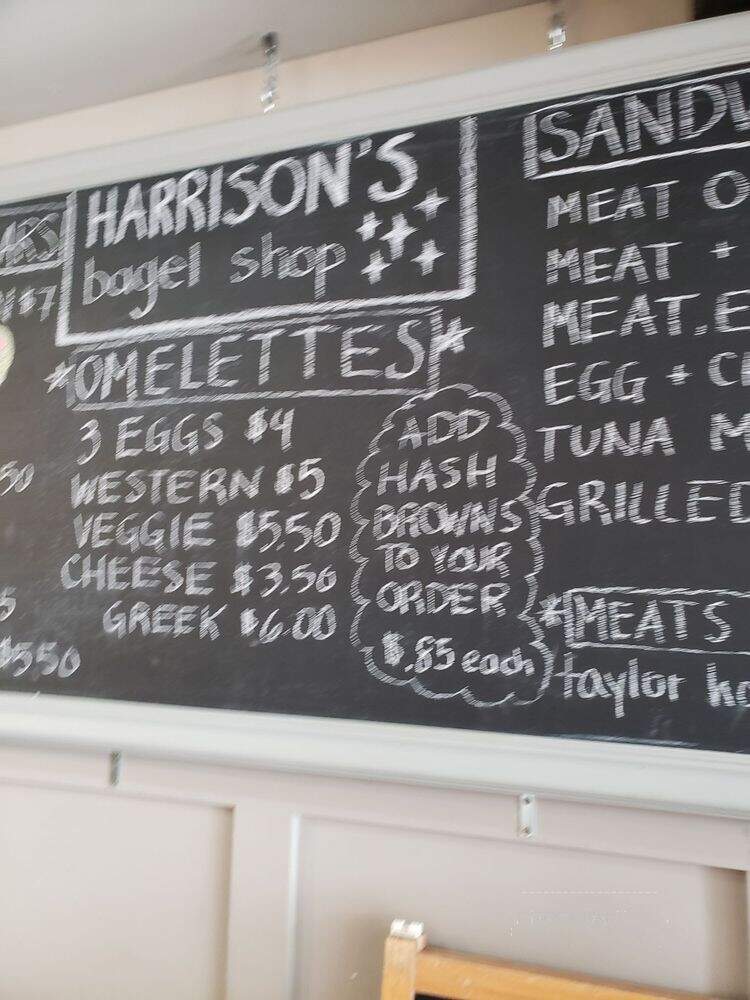 HARRISON'S
bagel shop
OMELETTES
3 EGGS $4
WESTERN $5
VEGGIE $5.50
CHEESE $3.50
GREEK $6.00
ADD
HASH
BROWNS
TO YOUR
ORDER
$.85 each
$7
50
5
$550
SANDW
MEAT O
MEAT +
MEAT, E
EGG + C
TUNA M
GRILLED
MEATS
taylor